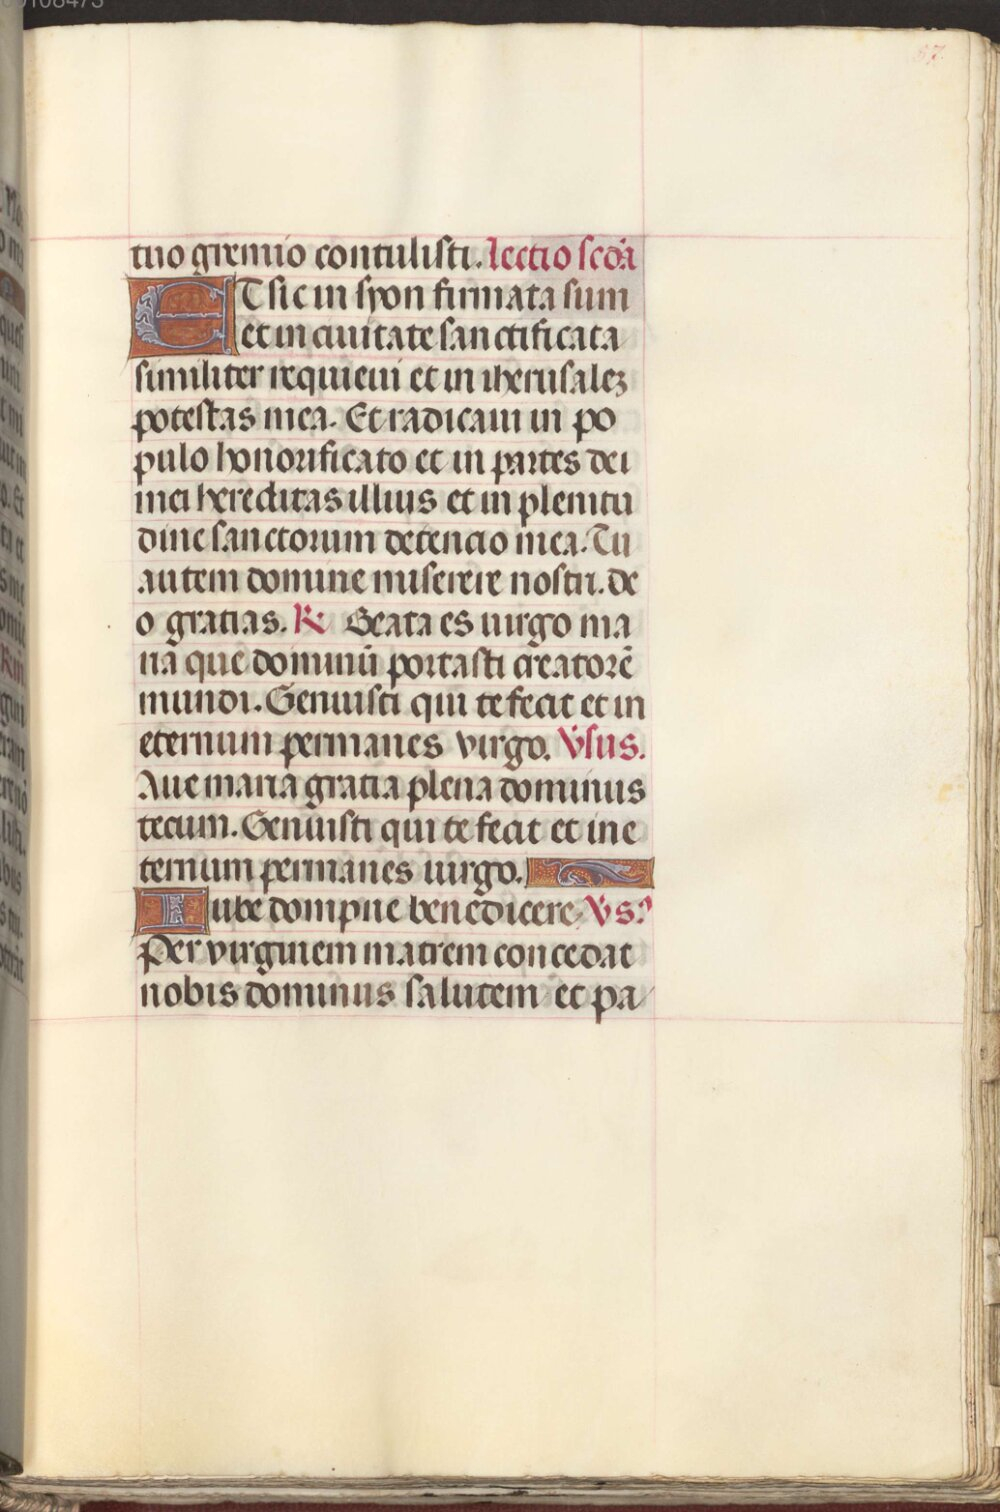 57
tuo gremio contulisti. lectio scda
ET sic in syon firmata sum
et in ciuitate sanctificata
similiter requieui et in iherusalez
potestas mea. Et radicaui in po
pulo honorificato et in partes dei
mei hereditas illius et in plenitu
dine sanctorum detencio mea. Tu
autem domine miserere nostri. de
o gratias. R Beata es uirgo ma
ria que dominū portasti creatorē
mundi. Genuisti qui te fecit et in
eternum permanes virgo. Vsus.
Aue maria gratia plena dominus
tecum. Genuisti qui te fecit et in e
ternum permanes uirgo.
Iube dompne benedicere. Vs.
Per virginem matrem concedat
nobis dominus salutem et pa